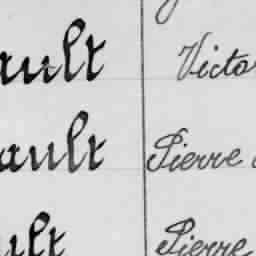 ault Victo
ault Pierre
ult Pierre